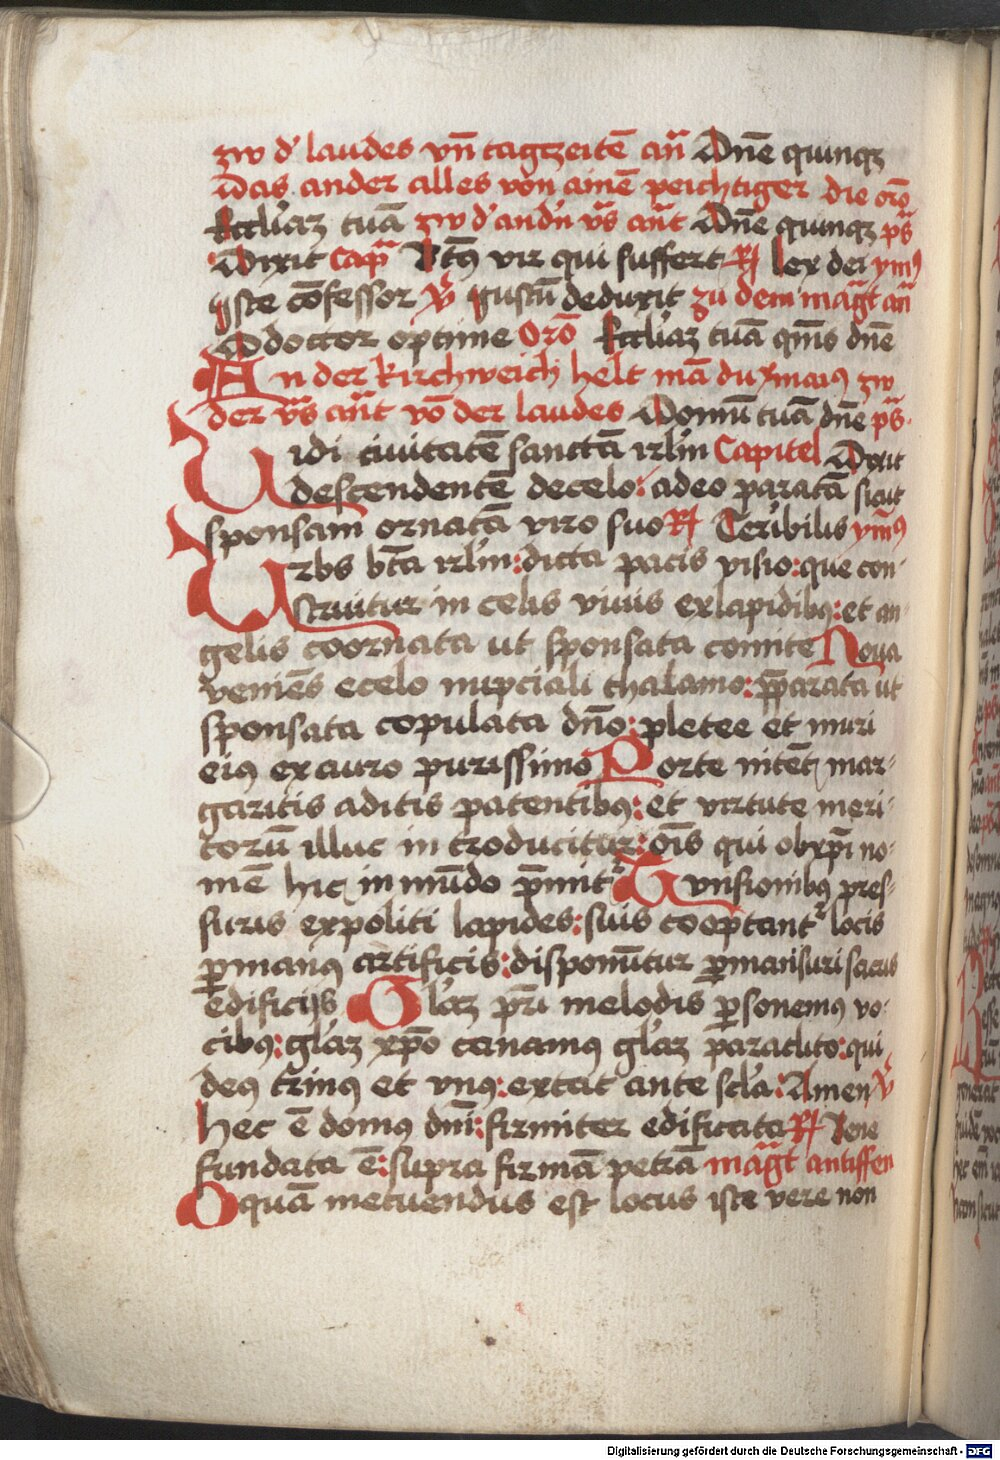 zw d' laudes vn̄ tagzeitē an̄ Dn̄e quinqz
Das ander alles von ainē peichtiger die orō
Eccl'iaz tuā zw d' and'n v̄s an̄t Dn̄e quinqz ps̄
Dixit Cap̄ Bt̄9 vir qui suffert R Lex dei ym̄9
Iste cōfessor V̄ Iustū deduxit zu dem maḡt an̄
O doctor optime Orō Eccl'iaz tuā qm̄s dn̄e
An der kirchweich helt mā du maius zw
der v̄s an̄t vō der laudes Domū tuā dn̄e ps̄
Uidi ciuitatē sanctā irl'm Capitel Dixit
descendentē de celo: a deo paratā sicut
sponsam ornatā viro suo R Teribilis ym̄9
Urbs bt̄a irl'm: dicta pacis visio: que con-
struitur in celis viuis ex lapidib9: et an-
gelis coornata ut sponsata comite Noua
veniēs e celo nupciali thalamo: p̄parata ut
sponsata copulata dn̄o: pletee et muri
ei9 ex auro purissimo Porte nitēt mar-
garitis aditis patentib9: et virtute meri-
torū illuc introducitur: ōis qui ob xp̄i no-
mē hic in mūdo p̄mit² Tunsionib9 pres-
suris expoliti lapides: suis cooptant² locis
p̱ man9 artificis: disponūtur p̱mansuri sacris
edificijs Gl'az pr̄i melodis p̱sonem9 vo-
cib9: gl'az xp̄o canam9 gl'az paraclito: qui
de9 trin9 et vn9: extat ante scl'a: Amen V̄
Hec ē dom9 dn̄i: firmiter edificata R Bene
fundata ē: supra firmā petrā maḡt antiffen
O quā metuendus est locus iste vere non
Digitalisierung gefördert durch die Deutsche Forschungsgemeinschaft - DFG